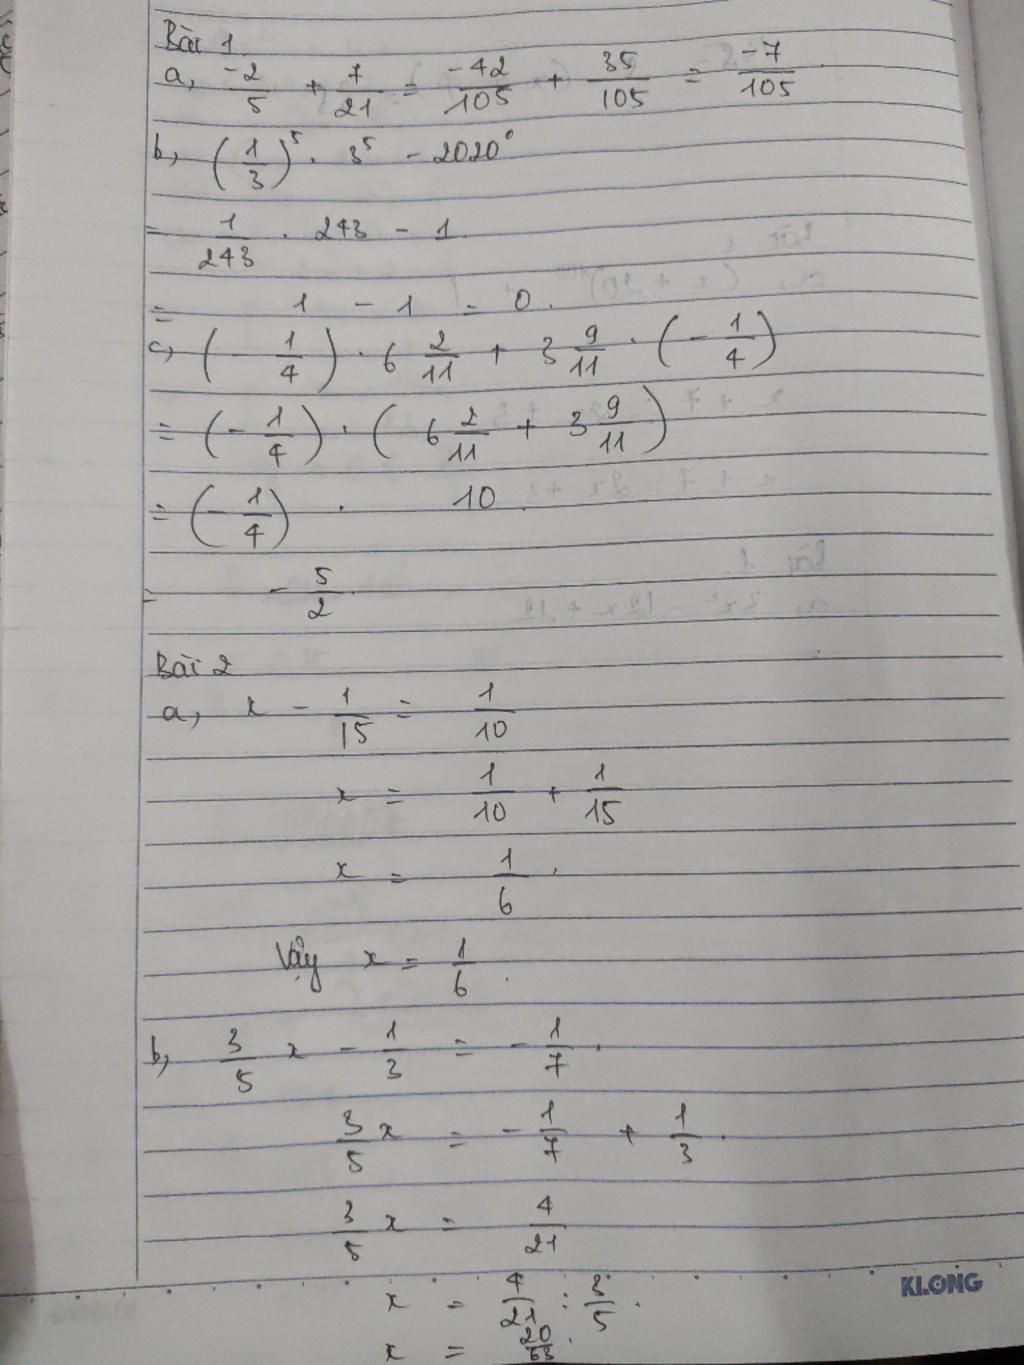 Bài 1
a, -2/5 + 7/21 = -42/105 + 35/105 = -7/105
b, (1/3)⁵ . 3⁵ - 2020⁰
= 1/243 . 243 - 1
= 1 - 1 = 0.
c, (-1/4) . 6 2/11 + 3 9/11 . (-1/4)
= (-1/4) . (6 2/11 + 3 9/11)
= (-1/4) . 10
= -5/2.
Bài 2
a, x - 1/15 = 1/10
x = 1/10 + 1/15
x = 1/6.
Vậy x = 1/6.
b, 3/5 x - 1/3 = -1/7.
3/5 x = -1/7 + 1/3.
3/5 x = 4/21
x = 4/21 : 3/5.
x = 20/63.
KLONG